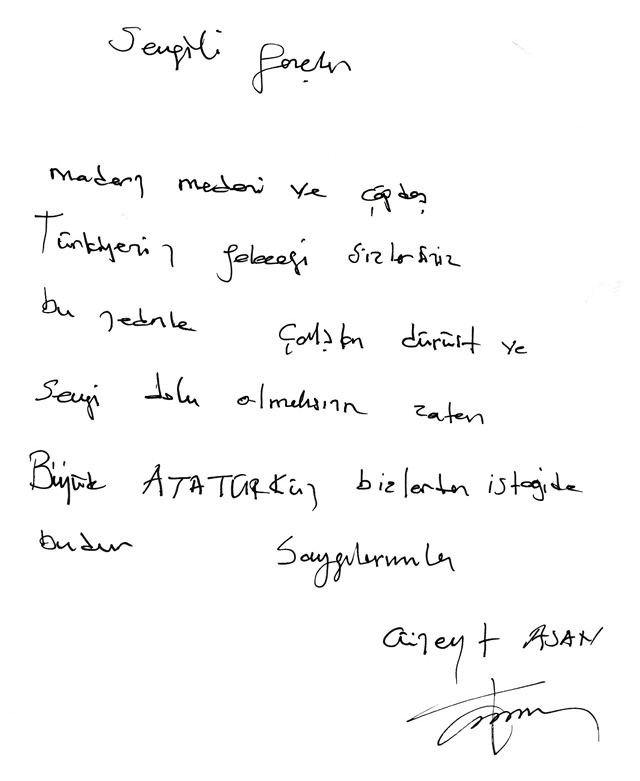 Sevgili Gençler
Modern medeni ve çağdaş
Türkiyenin geleceği sizlersiniz
bu nedenle çalışkan dürüst ve
Sevgi dolu olmalısınız zaten
Büyük ATATÜRKün bizlerden isteğide
budur Saygılarımla
Cüneyt ASAN